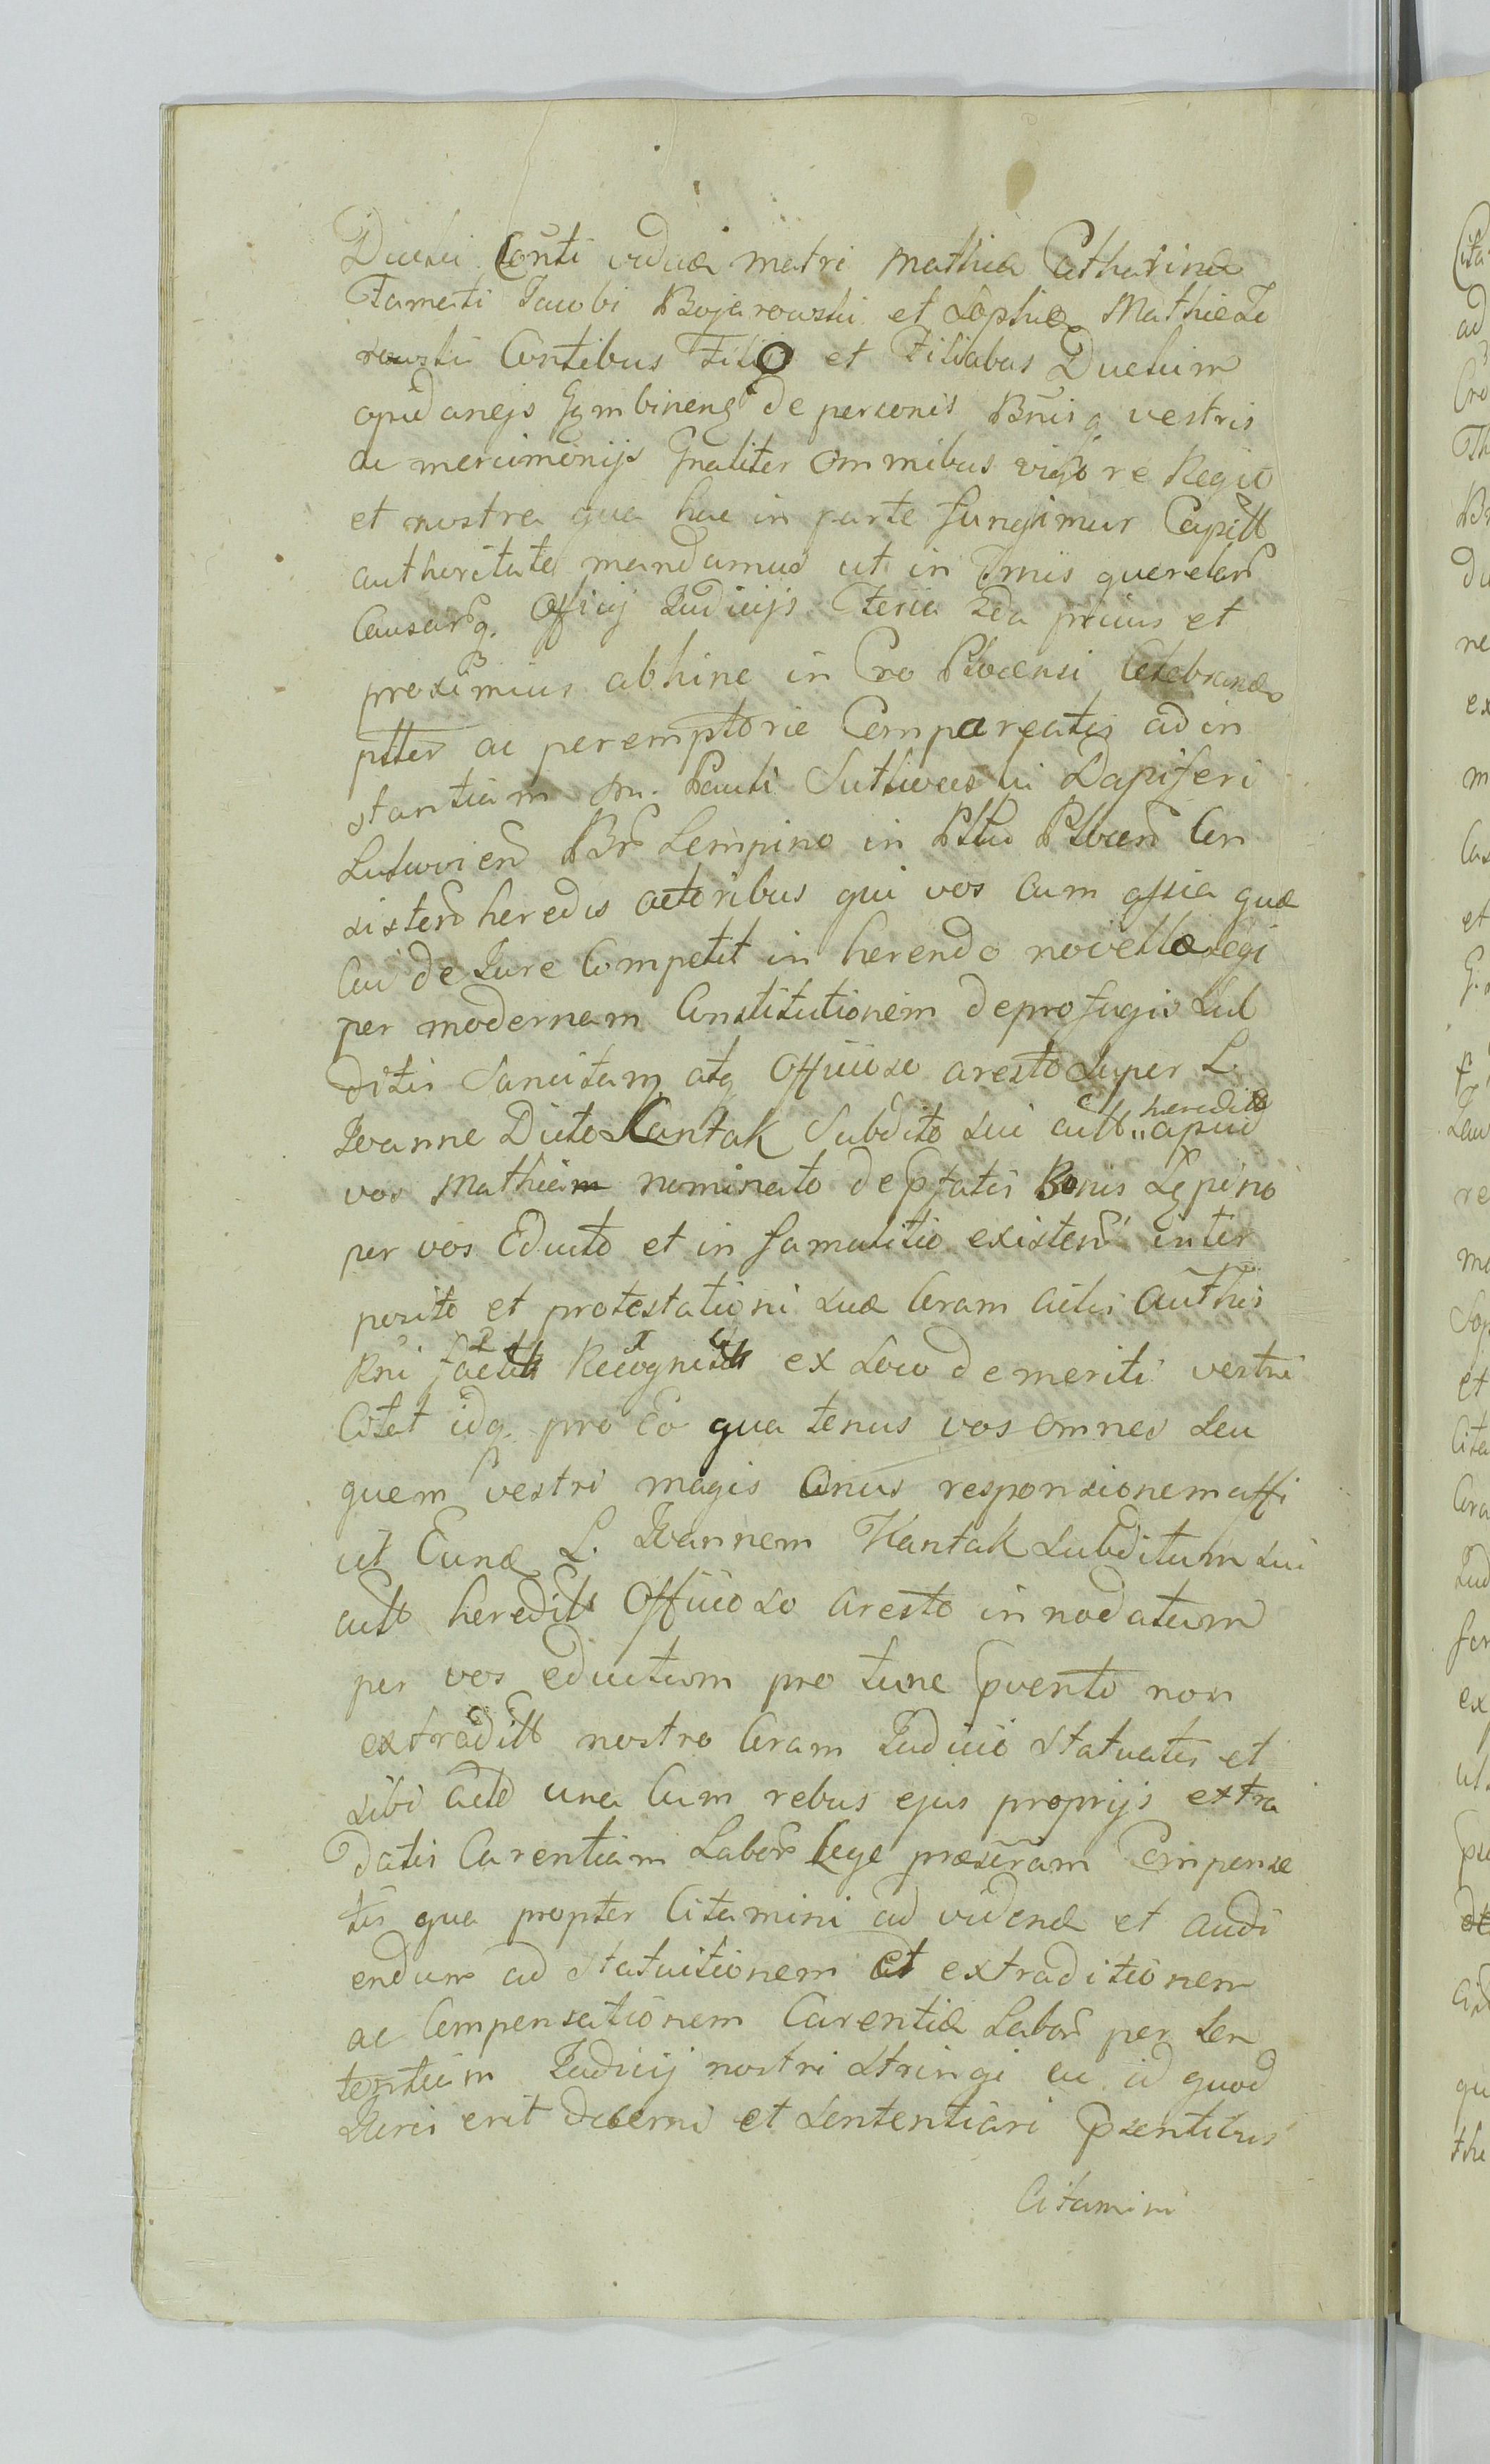 Duchi Conti viduæ matri Mathiæ Catharinæ
Famati Jacobi Bojarowski et Sophiæ Mathie Zi
rowski Contibus Filijs et Filiabus Duchim
opidanejs Gymbinens de personis Bnisq vestris
ac mercimonijs Gnaliter omnibus vigore Regio
et nostra qua hac in parte fungimur Capitli
authoritate mandamus ut in Tmis querelarū
Causarūq. Officij Judicijs Feria 2da prius et
proximius abhinc in Cro Plocensi Celebrandis
ptter ac peremptorie Compareatis ad in
stantiam M. Pauli Dapiferi
Br Lempino in Pltu Plocen Con
sisten heredis actoribus qui vos cum assia qua
Cui de Jure Competit in herendo novellæ legi
per modernam Constitutionem de profugis Sub
ditis Sancitam atq Officioso aresto super L.
Joanne Dicto Kantak Subdito sui actt hæredit
apud
vos Mathiam nominato de pstatis Bonis Lępino
per vos Educto et in famulitio existen inter
posito et protestationi suæ Coram actis authis
Rni factæ Recognitæ ex Loco demeriti vestri
Citat idq. pro Eo qua tenus vos omnes seu
quem vestri magis onus responsionem affi
cit Eund L. Joannem Kantak subditum sui
actt heredit Officioso aresto innodatum
per vos eductum pro tunc pvento non
extradit nostro Coram Judicio Statuatis et
sibi acto una Cum rebus ejus proprijs extra
datis Carentiam Labor Lege præscram Compense
tis qua propter Citamini ad videnđ et audi
endum ad Statuitionem et extraditionem
ac Compensationem Carentiæ Labor per Sen
tentiam Judicij nostri Stringi ac id quod
Juris erit decerni et Sententiari psentibus
Citamini